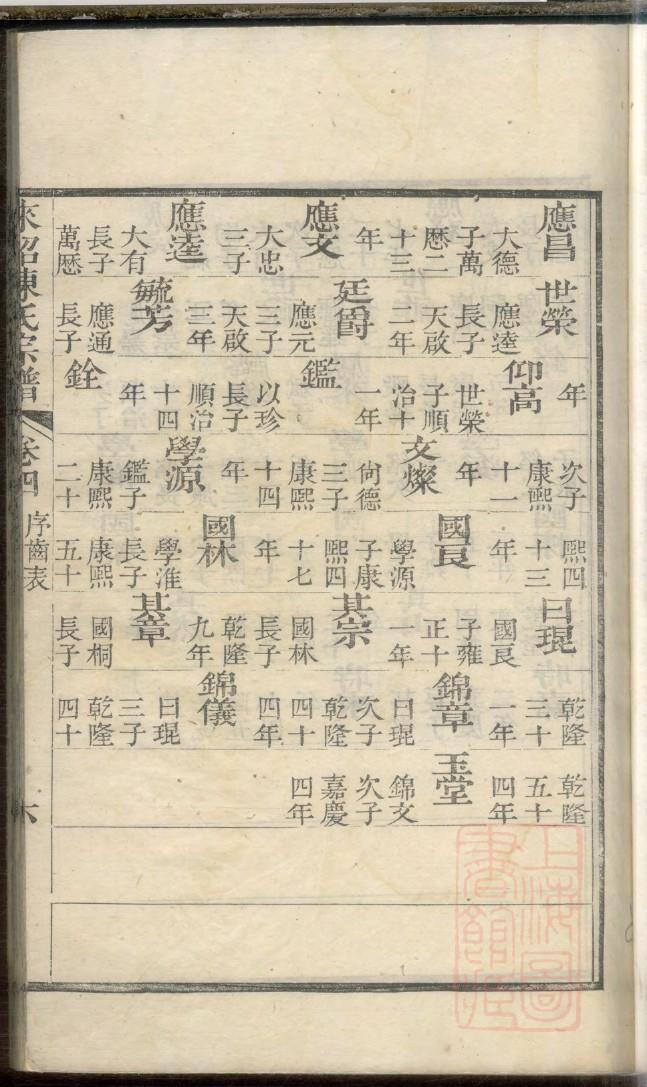 應昌 大德 子萬 曆二 十三 年 應文 大忠 三子 應逵 大有 長子 萬曆
世榮 應逵 長子 天啟 二年 廷爵 應元 三子 天啟 三年 毓芳 應通 長子
年 仰高 世榮 子順 治十 一年 鑑 以珍 長子 順治 十四 年 銓
次子 康熙 十一 年 文燦 尙德 三子 康熙 十四 年 學源 鑑子 康熙 二十
熙四 十三 年 國良 學源 子康 熙四 十七 年 國林 學淮 長子 康熙 五十
曰琨 國良 子雍 正十 一年 其宗 國林 長子 乾隆 九年 其章 國桐 長子
乾隆 三十 一年 錦章 曰琨 次子 乾隆 四十 四年 錦儀 曰琨 三子 乾隆 四十
乾隆 五十 四年 玉堂 錦文 次子 嘉慶 四年
來紹陳氏宗譜 卷四 序齒表 六
上海圖
書館藏